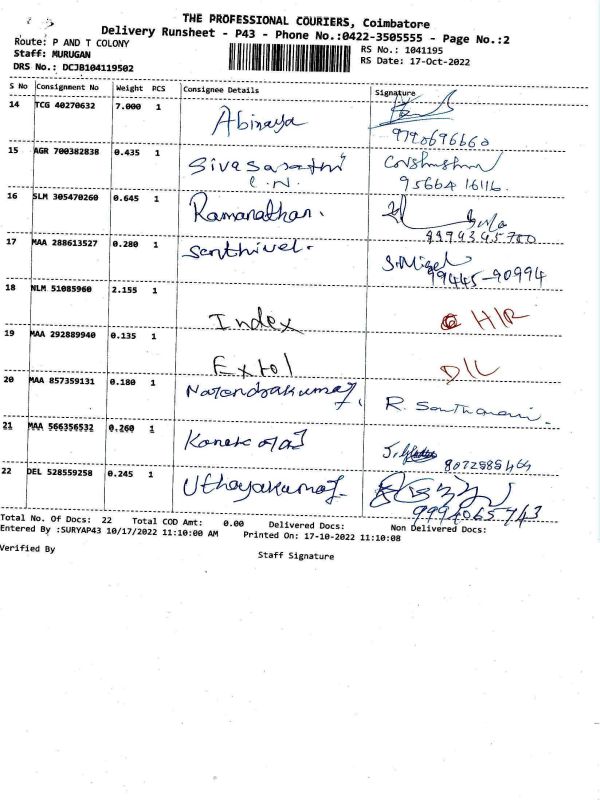 THE PROFESSIONAL COURIERS, Coimbatore
Delivery Runsheet - P43 - Phone No.:0422-3505555 - Page No.:2
Route: P AND T COLONY
RS No.: 1041195
Staff: MURUGAN
RS Date: 17-Oct-2022
DRS No.: DCJB104119502
S No Consignment No Weight PCS Consignee Details Signature
14 TCG 40270632 7.000 1 Abinaya
9790696660
15 AGR 700382838 0.435 1 Sivasarathi
C.N. 95664 16116.
16 SLM 305470260 0.645 1 Ramanathan.
17 MAA 288613527 0.280 1 Senthivel.
79445-90994
18 NLM 51085960 2.155 1
Index H/R
19 MAA 292889940 0.135 1
Extol D/L
20 MAA 857359131 0.180 1 Narendrakumar R. Santhamani.
21 MAA 566356532 0.260 1 Kanakaraj
8072985464
22 DEL 528559258 0.245 1 Uthayakumar
9994065743
Total No. Of Docs: 22 Total COD Amt: 0.00 Delivered Docs: Non Delivered Docs:
Entered By :SURYAP43 10/17/2022 11:10:00 AM Printed On: 17-10-2022 11:10:08
Verified By Staff Signature